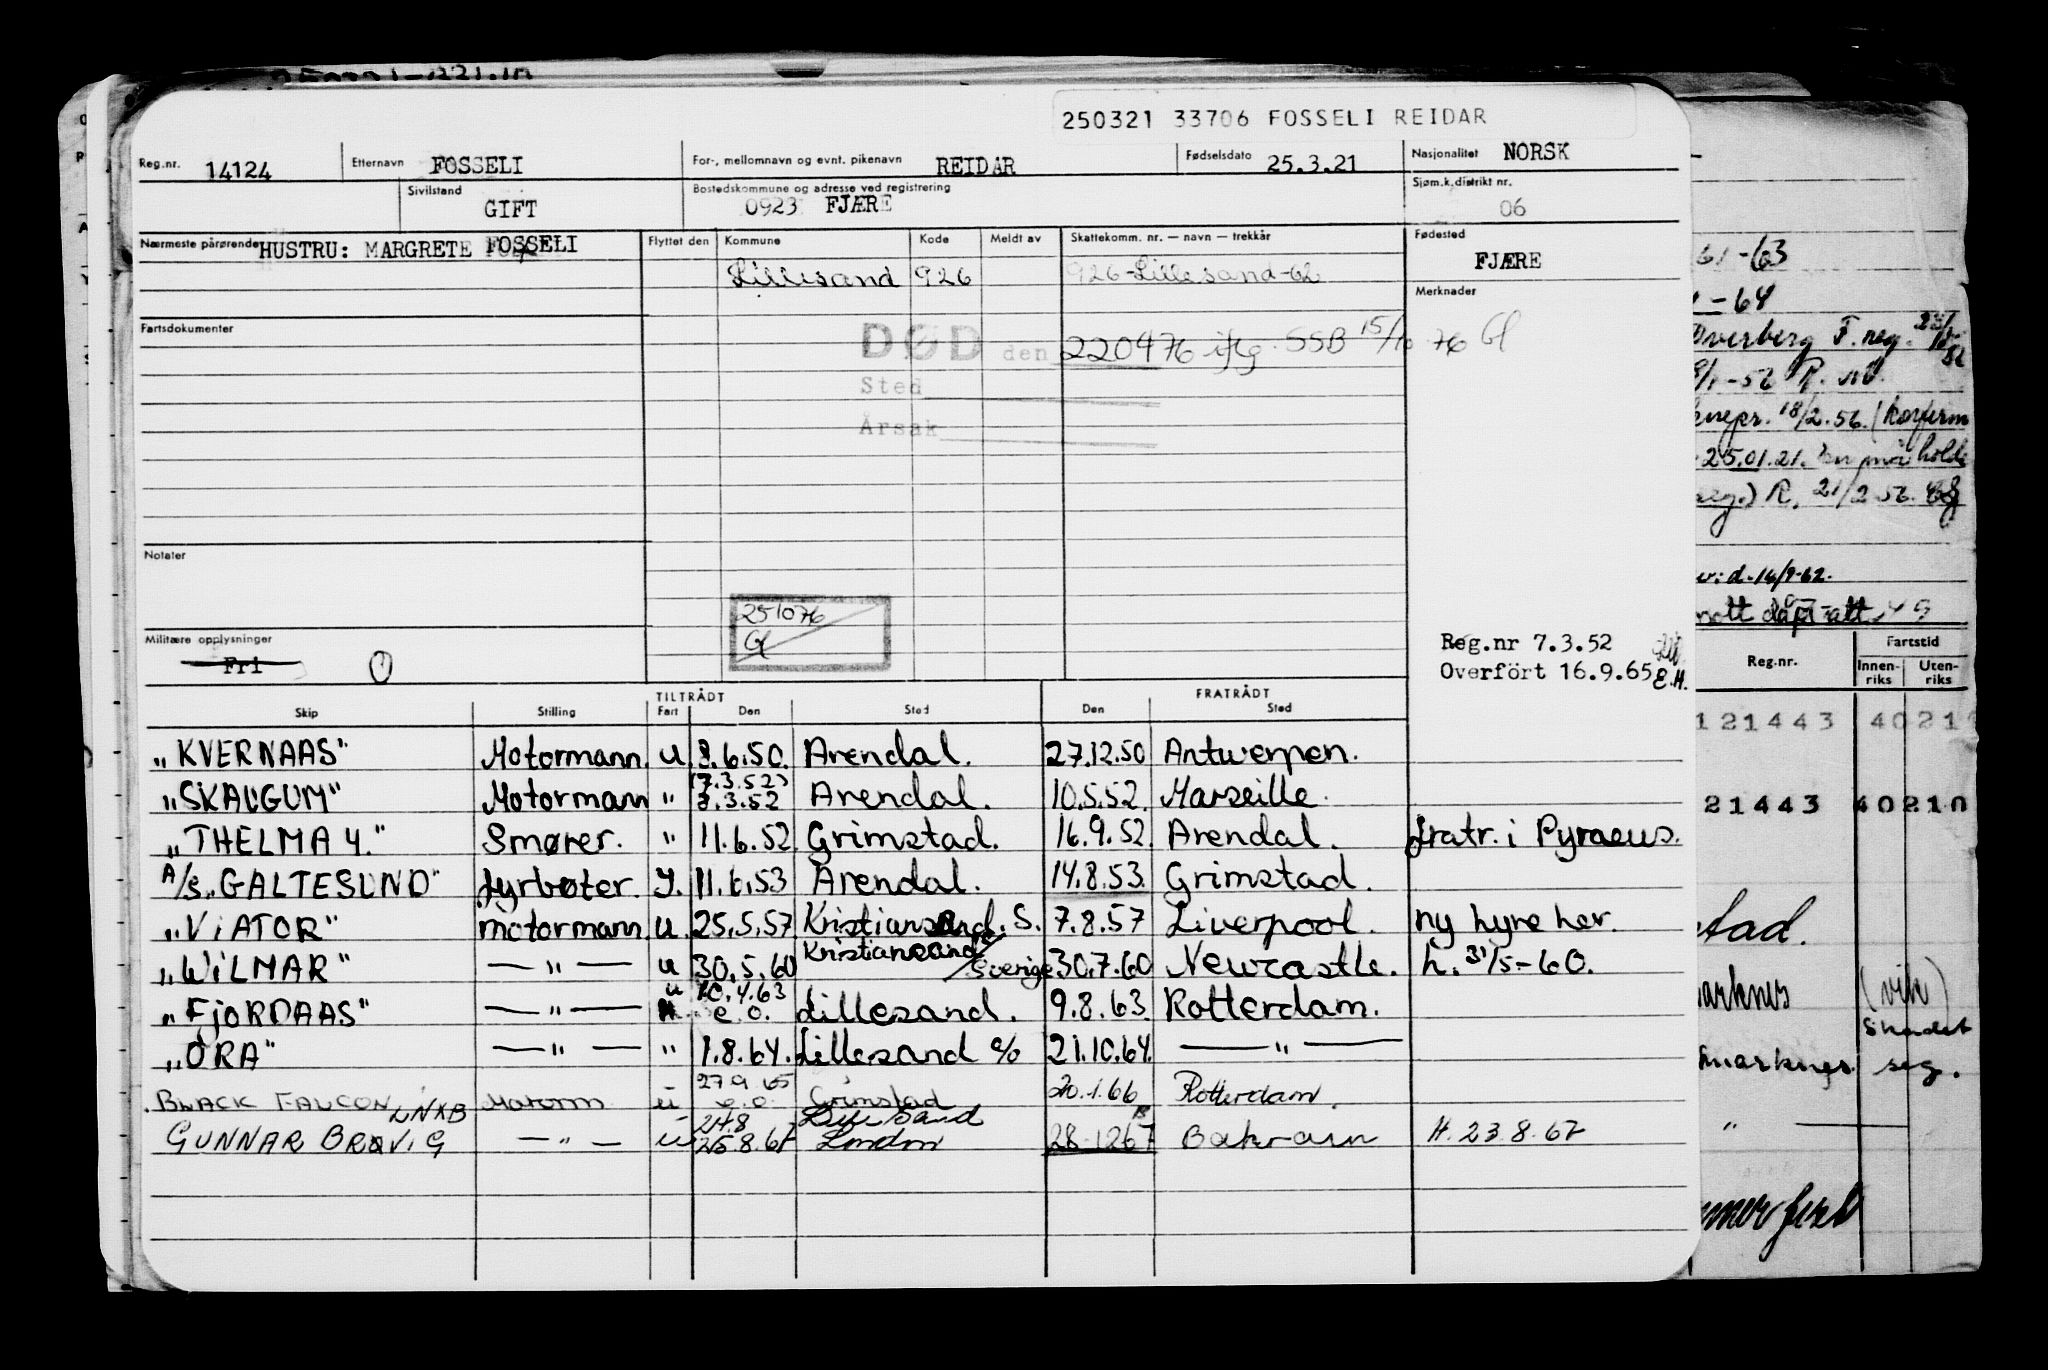 250321 33706 FOSSELI REIDAR
Reg.nr. 14124 Etternavn FOSSELI For-, mellomnavn og evnt. pikenavn REIDAR Fødselsdato 25.3.21 Nasjonalitet NORSK
Sivilstand GIFT Bostedskommune og adresse ved registrering 0923 FJÆRE Sjøm.k.distrikt nr. 06
Nærmeste pårørende HUSTRU: MARGRETE FOSSELI Flyttet den Kommune Kode Meldt av Skattekomm. nr. — navn — trekkår Fødested FJÆRE
Lillesand 926 926-Lillesand-62
Merknader
Fartsdokumenter
DØD den 220476 iflg. SSB 15/10 76 Gl
Sted
Årsak
Notater
251076
Gl
Militære opplysninger
Fri 0
Reg.nr 7.3.52
Overfört 16.9.65 E.H.
TILTRÅDT FRATRÅDT
Skip Stilling Fart Den Sted Den Sted
"KVERNAAS" Motormann. u 3.6.50. Arendal. 27.12.50 Antwerpen.
(7.3.52)
"SKAUGUM" Motormann " 3.3.52 Arendal. 10.5.52. Marseille.
"THELMA 4." Smører. " 11.6.52 Grimstad. 16.9.52. Arendal. fratr. i Pyraeus.
A/S "GALTESUND" fyrbøter. I. 11.6.53 Arendal. 14.8.53. Grimstad.
"ViATOR" motormann. u. 25.5.57 Kristiansand. S. 7.8.57 Liverpool. ny hyre her.
"WiLMAR" — " — u 30.5.60 Kristiansand/Sverige 30.7.60 Newcastle. h. 31/5-60.
u 10.4.63
"FjORDAAS" — " — e.o. Lillesand. 9.8.63. Rotterdam.
"ORA" — " — " 1.8.64. Lillesand e/o 21.10.64. — " —
27.9.65
BLACK FALCON LNXB Motorm u e.o. Grimstad 20.1.66 Rotterdam.
24.8 Lillesand
GUNNAR BRØVIG — " — u 25.8.67 London 28.1267 Bahrain H. 23.8.67
61-63
-64
Overberg F. reg.
18/2.56. (Konferm
25.01.21. holde
R. 21/2 56.
d. 14/9-62.
Reg.nr. Fartstid
Innen-riks Uten-riks
121443 4021
21443 40210
stad.
(vik)
Skadet
seg.
"